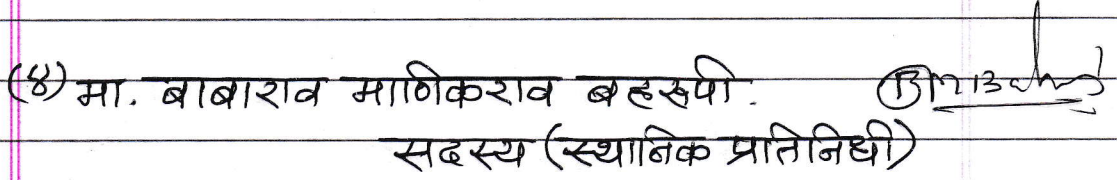 (४) मा. बाबाराव माणिकराव बहरूपी.
सदस्य (स्थानिक प्रातिनिधी)